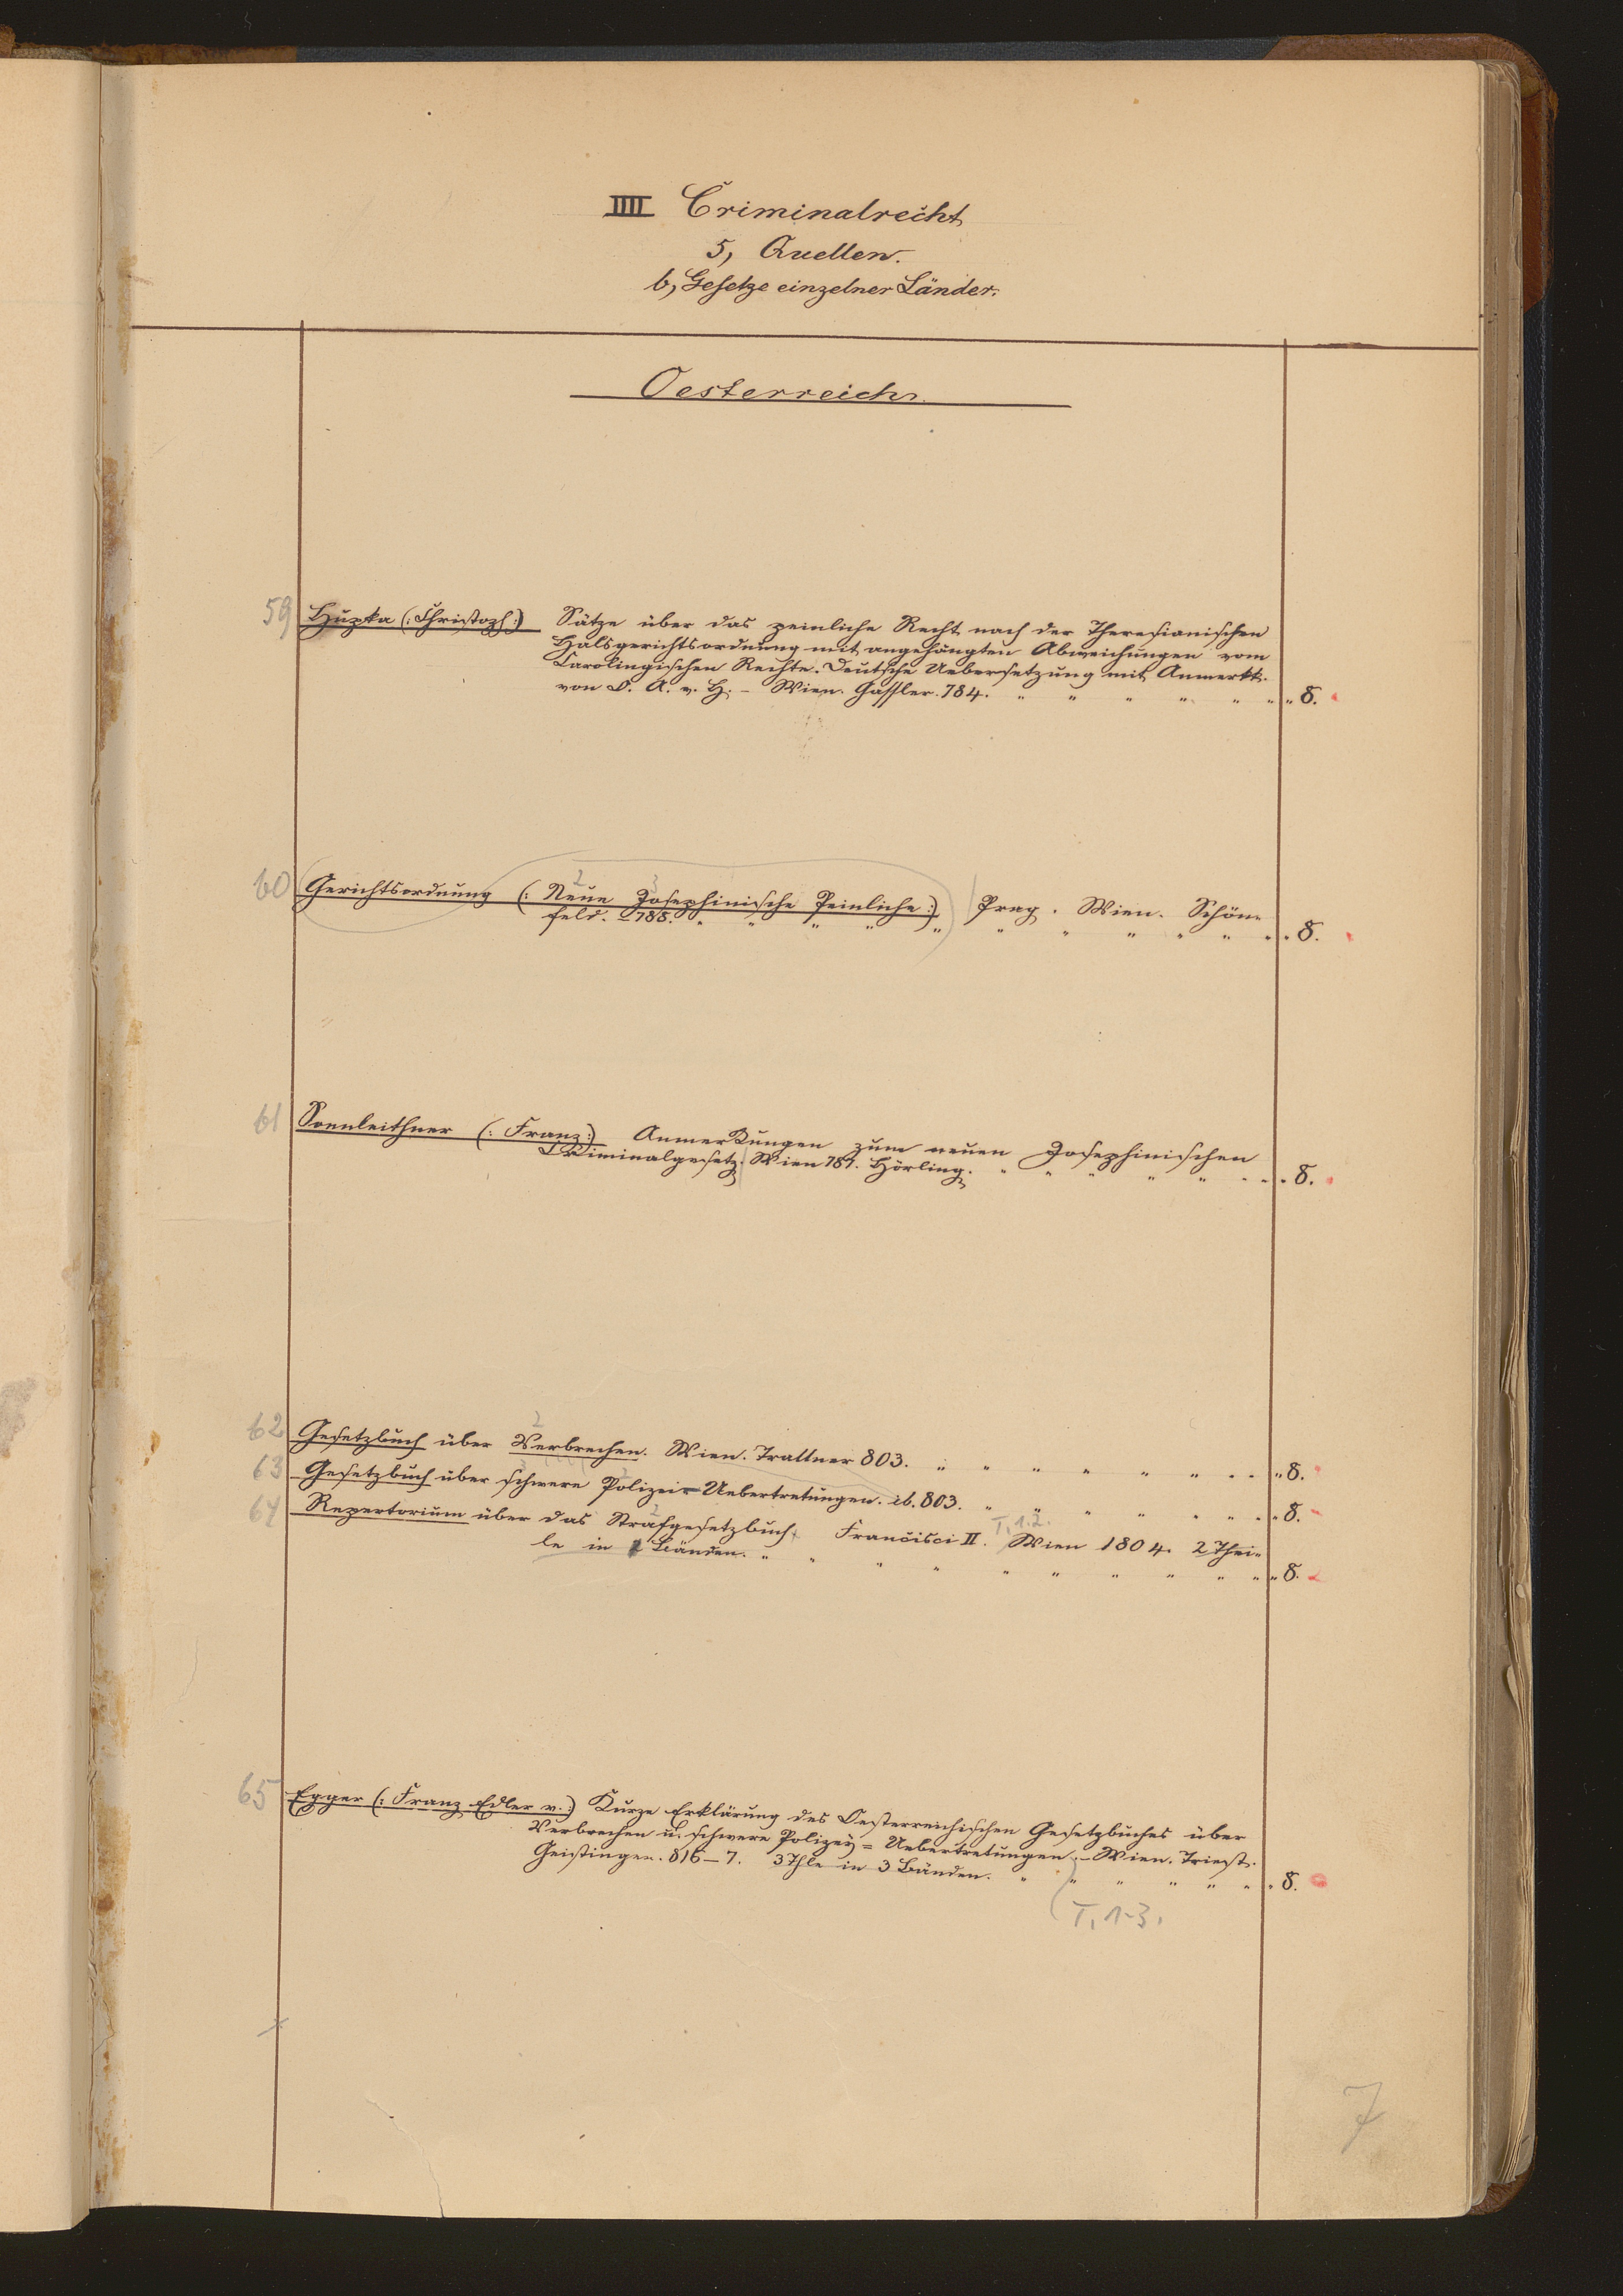 IIII Criminalrecht
5, Quellen.
b, Gesetze einzelner Länder.
Oesterreich.
59 Hupka (: Christoph :) Sätze über das peinliche Recht nach der Theresianischen
Halsgerichtsordnung mit angehängten Abweichungen vom
Carolingischen Rechte. Deutsche Uebersetzung mit Anmerkk.
von D. A. v. H. – Wien. Gassler. 784. " " " " " " " 8.
60 Gerichtsordnung (: Neue Josephinische Peinliche :) Prag. Wien. Schön-
2 3
feld. – 788. " " " " " " " " " " " " 8.
61 Sonnleithner (: Franz :) Anmerkungen zum neuen Josephinischen
Criminalgesetz. Wien 787. Hörling. " " " " " " " " 8.
62 Gesetzbuch über Verbrechen. Wien. Trattner 803. " " " " " " " " " 8.
2
63 Gesetzbuch über schwere Polizei-Uebertretungen. ib. 803. " " " " " " " " 8.
64 Repertorium über das Strafgesetzbuch Francisci II. Wien 1804. 2 Thei-
2 T. 1. 2.
le in 2 Bänden. " " " " " " " " " " " 8.
65 Egger (: Franz Edler v. :) Kurze Erklärung des Oesterreichischen Gesetzbuches über
Verbrechen u. schwere Polizey = Uebertretungen. – Wien. Triest.
Geistinger. 816–7. 3 Thle in 3 Bänden. " " " " " " " 8.
T. 1-3.
7